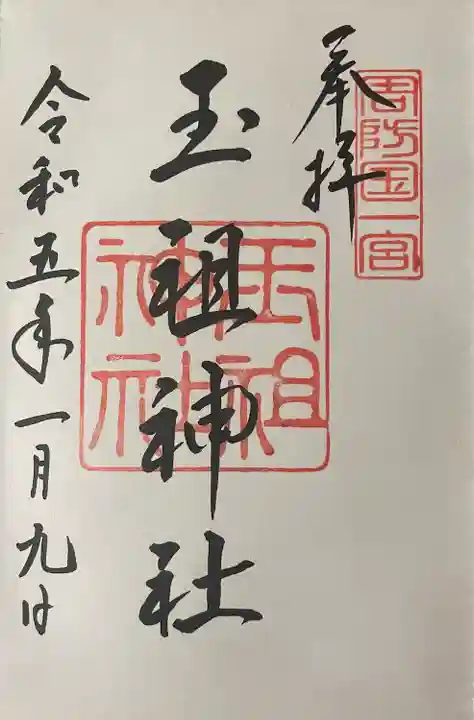 周防国一宮
奉拝
玉祖神社
玉祖
神社
令和五年一月九日